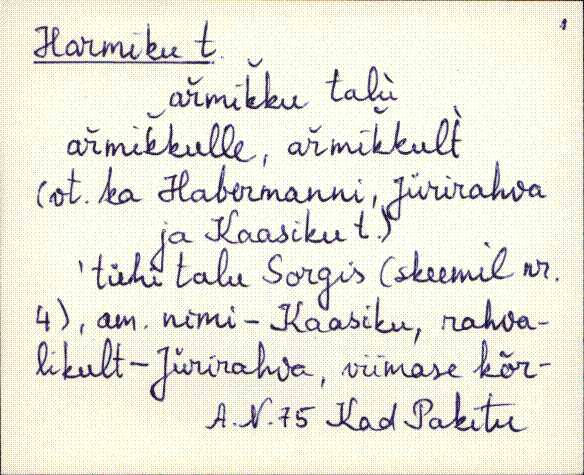 1
Harmiku t.
ar̆mik̆ku talù
ar̆mik̆kulle, ar̆mik̆kult̀
(vt. ka Habermanni, Jürirahva
ja Kaasiku t.)
'tühi talu Sorgis (skeemil nr.
4), am. nimi - Kaasiku, rahva-
likult - Jürirahva, viimase kõr-
A.N. 75 Kad Pakitu